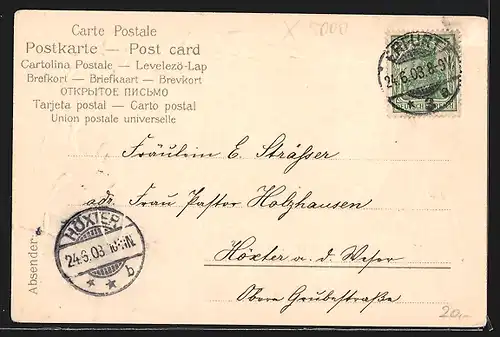 Carte Postale
Postkarte — Post card
Cartolina Postale — Levelezö-Lap
Brefkort — Briefkaart — Brevkort
ОТКРЫТОЕ ПИСЬМО
Tarjeta postal — Carto postal
Union postale universelle
ERFURT
24.6.03.8-9V.
* 3 a
Fräulein E. Strässer
adr. Frau Pastor Holzhausen
Höxter a. d. Weser
Obere Grubestraße
HÖXTER
24.6.03
* * b
Absender
20,-